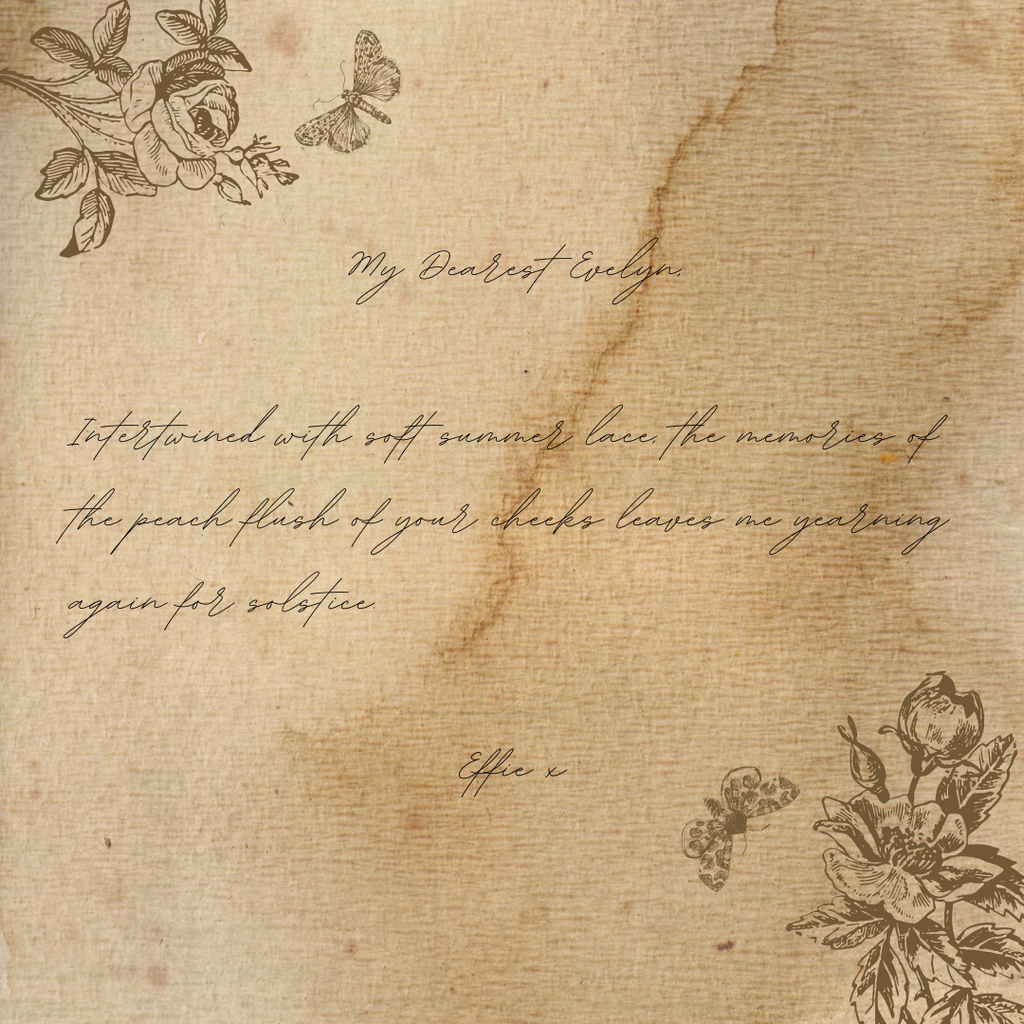 My Dearest Evelyn,
Intertwined with soft summer lace, the memories of
the peach flush of your cheeks leaves me yearning
again for solstice.
Effie x